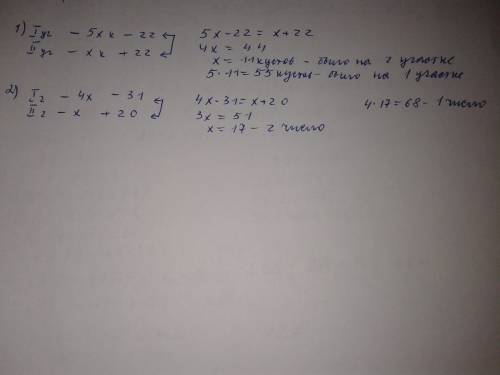 1) I уч - 5x к - 22 5x - 22 = x + 22
II уч - x к + 22 4x = 44
x = 11 кустов - было на 2 участке
5 · 11 = 55 кустов - было на 1 участке
2) I ч - 4x - 31 4x - 31 = x + 20 4 · 17 = 68 - 1 число
II ч - x + 20 3x = 51
x = 17 - 2 число